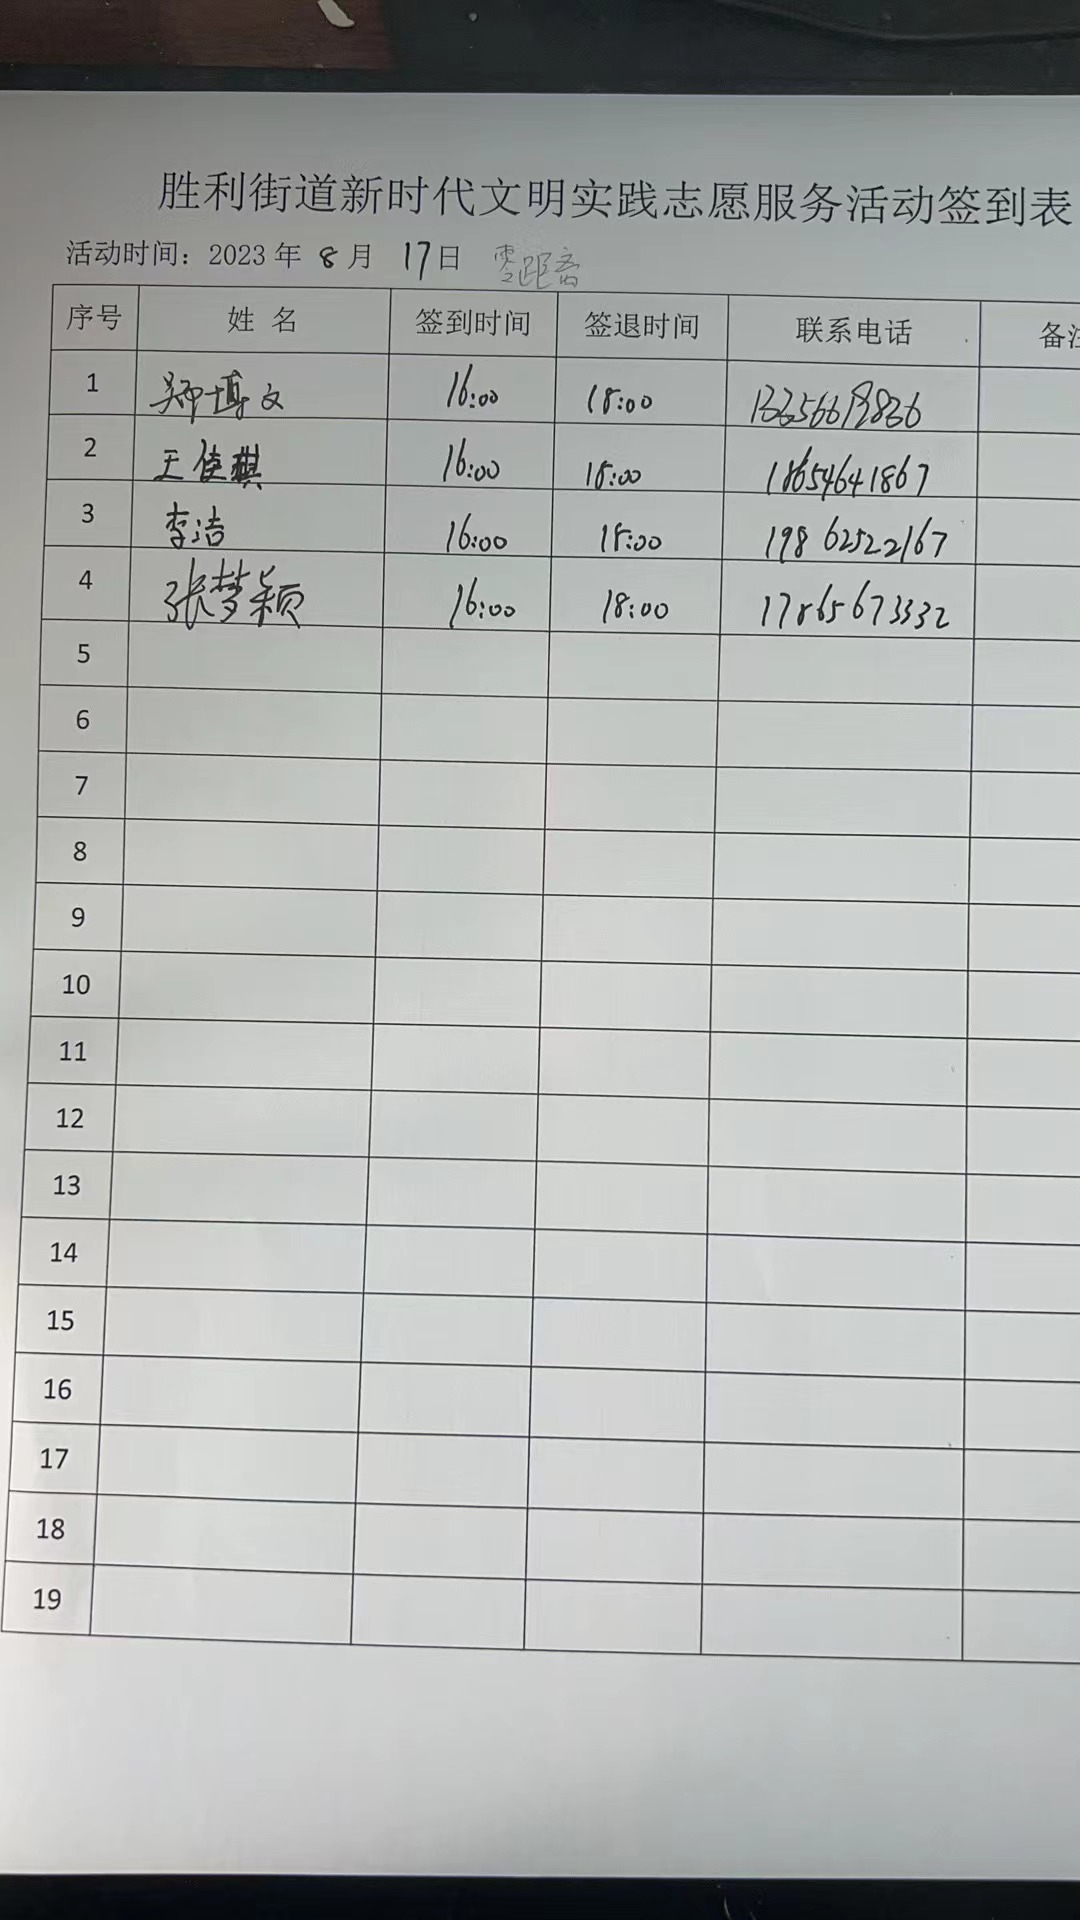 胜利街道新时代文明实践志愿服务活动签到表
活动时间：2023 年 8 月 17 日 零距离
序号 姓 名 签到时间 签退时间 联系电话 备注
1 郑博文 16:00 18:00
2 王佳琪 16:00 18:00 18654641867
3 李洁 16:00 18:00 19862522167
4 张梦颖 16:00 18:00 17865673332
5
6
7
8
9
10
11
12
13
14
15
16
17
18
19